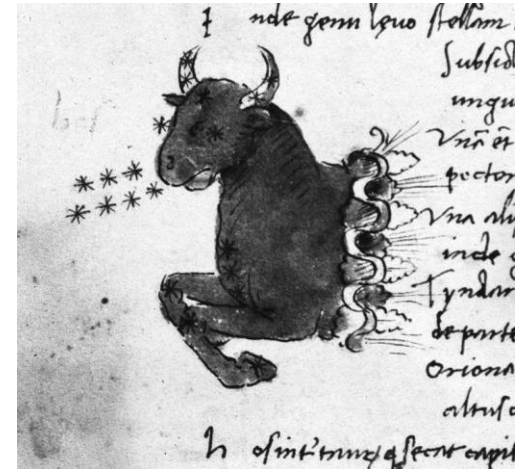 I nde genu levo stellam
Subsid
ungu
Una et
pector
Una ali
inde
Tyndar
de parte
Oriona
altusc
h osint secat capit